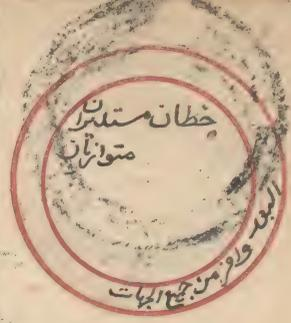 خطان مستديران
متوازيان
البعد وافر من جميع الجهات